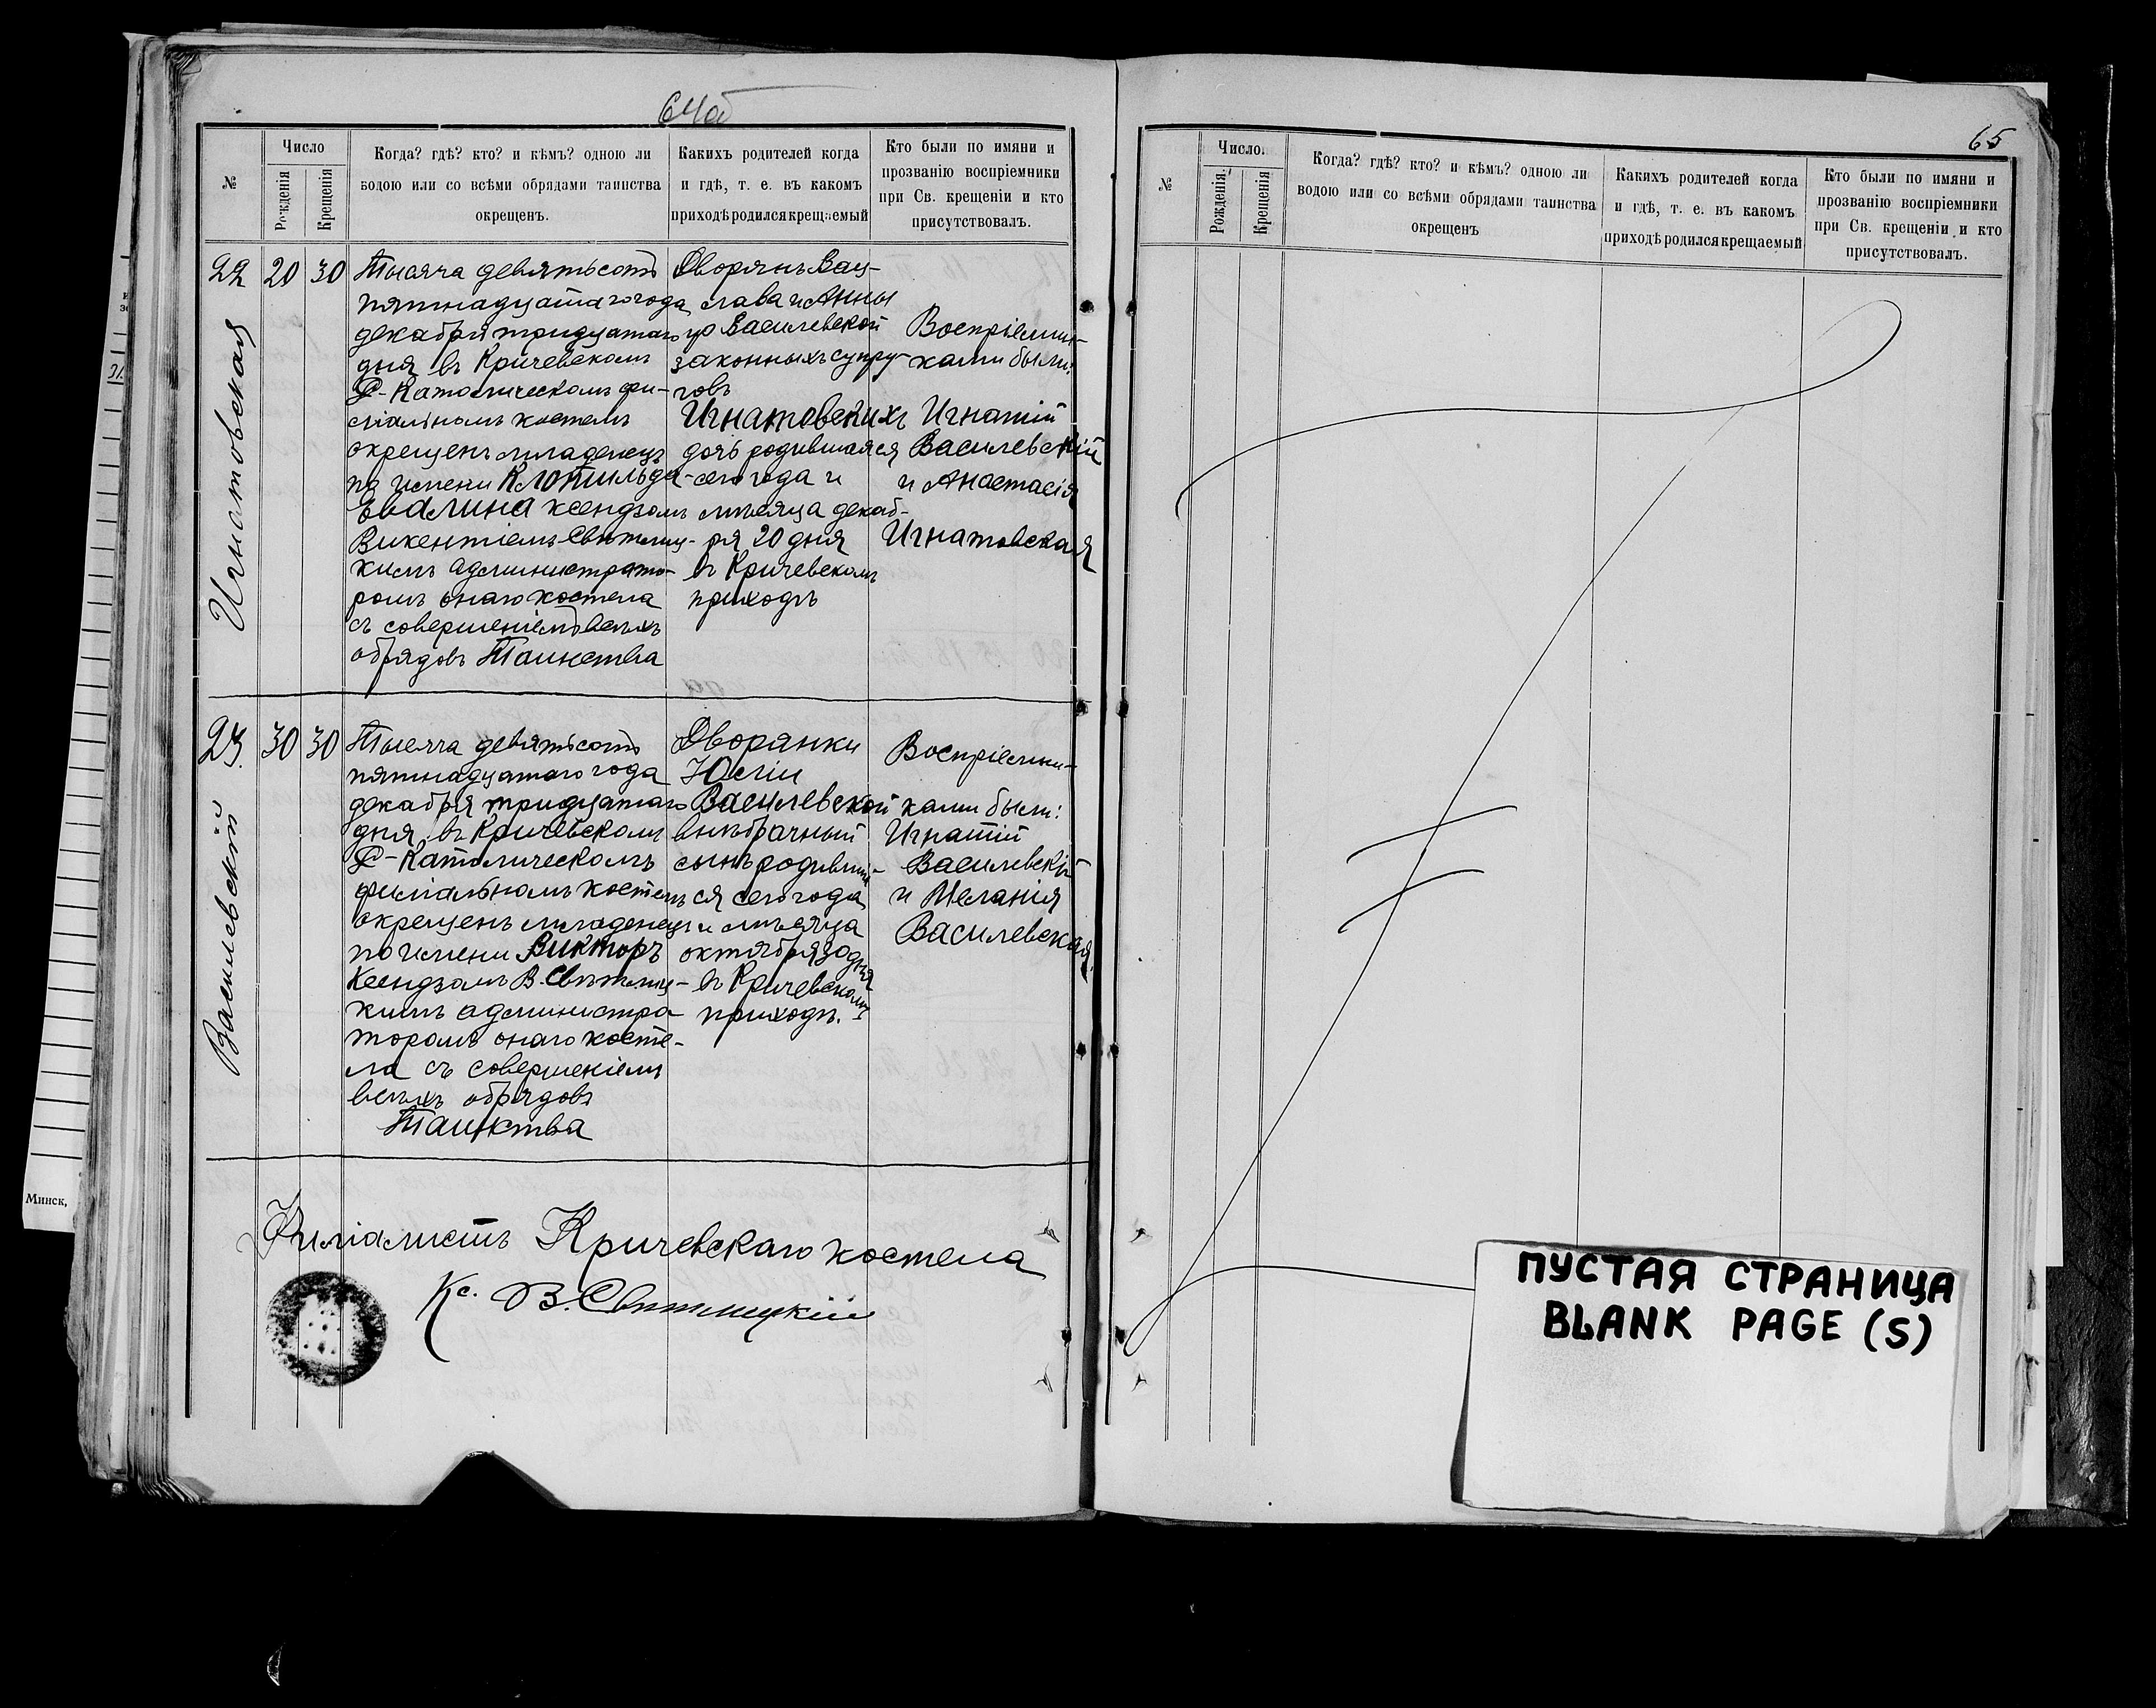 64об
№
Число
Рожденія
Крещенія
Когда? гдѣ? кто? и кѣмъ? одною ли
водою или со всѣми обрядами таинства
окрещенъ.
Какихъ родителей когда
и гдѣ, т. е. въ какомъ
приходѣ родился крещаемый
Кто были по имяни и
прозванію воспріемники
при Св. крещеніи и кто
присутствовалъ.
22
Игнатовская
20
30
Тысяча девятьсотъ
пятнадцатаго года
декабря тридцатаго
дня въ Кричевскомъ
Р-Католическомъ фи-
ліальномъ костелѣ
окрещенъ младенецъ
по имени Клотильда-
Эвалина ксендзомъ
Викентіемъ Свѣтлиц-
кимъ администрато-
ромъ онаго костела
съ совершеніемъ всѣхъ
обрядовъ Таинства
Дворянъ Вац-
лава и Анны
ур Василевской
законныхъ супру-
говъ
Игнатовскихъ
дочь родившаяся
сего года и
мѣсяца декаб-
ря 20 дня
въ Кричевскомъ
приходѣ
Воспріемни-
ками были:
Игнатій
Василевскій
и Анастасія
Игнатовская
23.
Василевскій
30
30
Тысяча девятьсотъ
пятнадцатаго года
декабря тридцатаго
дня въ Кричевскомъ
Р-Католическомъ
филіальномъ костелѣ
окрещенъ младенецъ
по имени Викторъ
Ксендзомъ В. Свѣтлиц-
кимъ администра-
торомъ онаго косте-
ла съ совершеніемъ
всѣхъ обрядовъ
Таинства
Дворянки
Юліи
Василевской
внѣбрачный
сынъ родивший-
ся сего года
и мѣсяца
октября 30 дня
въ Кричевскомъ
приходѣ.
Воспріемни-
ками были:
Игнатій
Василевскій
и Меланія
Василевская.
Филіалистъ Кричевскаго костела
Кс. В. Свѣтлицкій
Минск,
65
№
Число.
Рожденія.
Крещенія
Когда? гдѣ? кто? и кѣмъ? одною ли
водою или со всѣми обрядами таинства
окрещенъ
Какихъ родителей когда
и гдѣ, т. е. въ какомъ
приходѣ родился крещаемый
Кто были по имяни и
прозванію воспріемники
при Св. крещеніи и кто
присутствовалъ.
ПУСТАЯ СТРАНИЦА
BLANK PAGE (S)